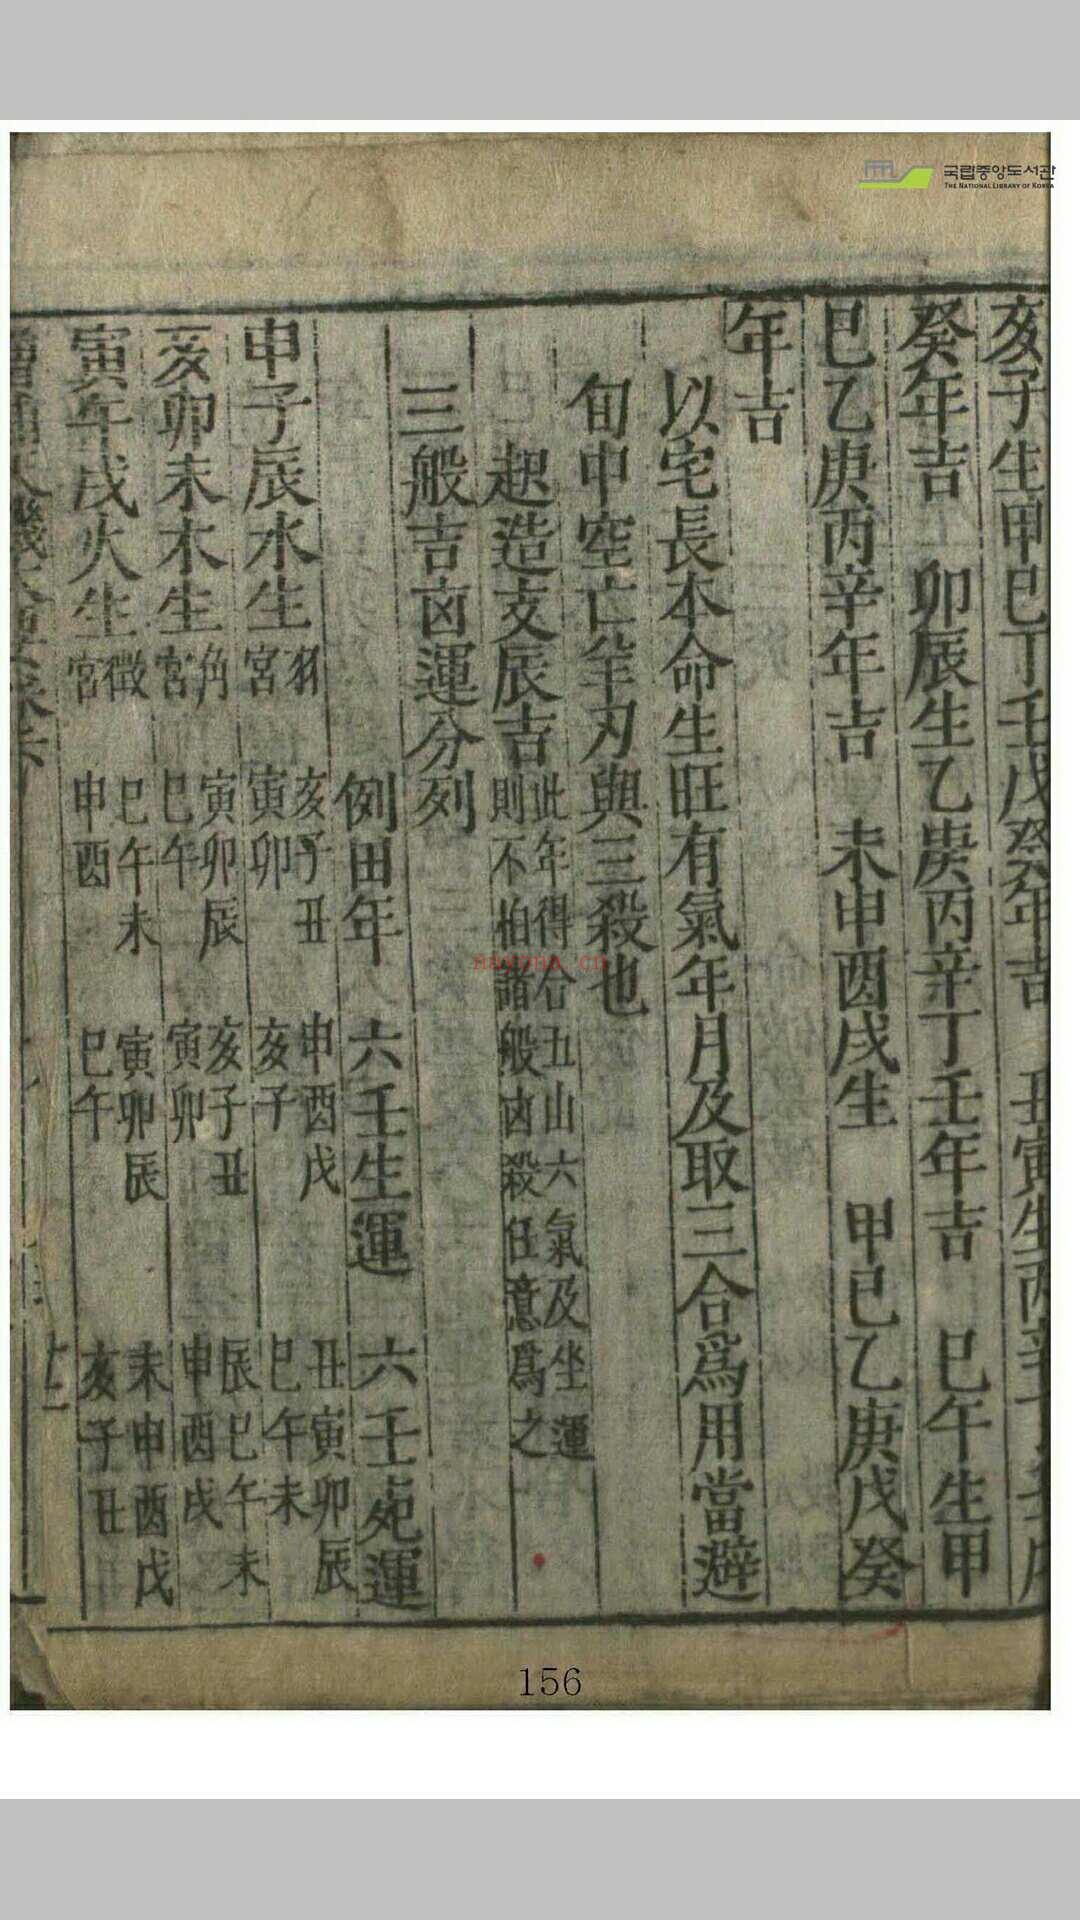 국립중앙도서관
THE NATIONAL LIBRARY OF KOREA
亥子生甲己丁壬戊癸年吉 丑寅生丙辛
癸年吉 卯辰生乙庚丙辛丁壬年吉 巳午生甲
己乙庚丙辛年吉 未申酉戌生 甲己乙庚戊癸
年吉
以宅長本命生旺有氣年月及取三合爲用當避
旬中空亡羊刃與三殺也
起造支辰吉 此年得合丑山六氣及坐運
則不怕諸般凶殺任意爲之
三般吉凶運分列
例田年 六壬生運 六壬死運
申子辰水生 羽宮 亥子丑寅卯 申酉戌亥子 丑寅卯辰巳午未
亥卯未木生 角宮 寅卯辰巳午 亥子丑寅卯 辰巳午未申酉戌
寅午戌火生 徵宮 巳午未申酉 寅卯辰巳午 未申酉戌亥子丑
nayona.cn
156